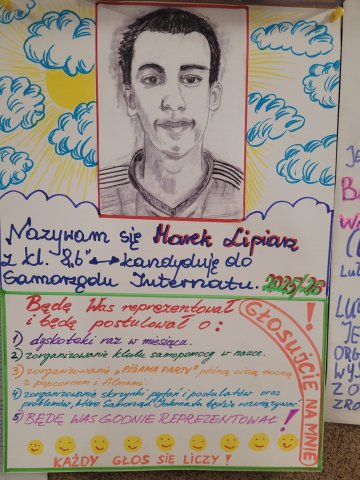 Nazywam się Marek Lipiarz
z kl. "8,b" ↔ kandyduję do
Samorządu Internatu. 2025/26
Będę Was reprezentował
i będę postulował o:
1) dyskoteki raz w miesiącu.
2) zorganizowanie klubu samopomocy w nauce.
3) zorganizowaniu "PIŻAMA PARTY" późną ciszą nocną
z popcornem i filmami.
4) zorganizowanie skrzynki pytań i postulatów oraz
problemów, które Samorząd Internatu będzie rozwiązywać.
5) BĘDĘ WAS GODNIE REPREZENTOWAŁ!
GŁOSUJCIE NA MNIE!
KAŻDY GŁOS SIĘ LICZY!